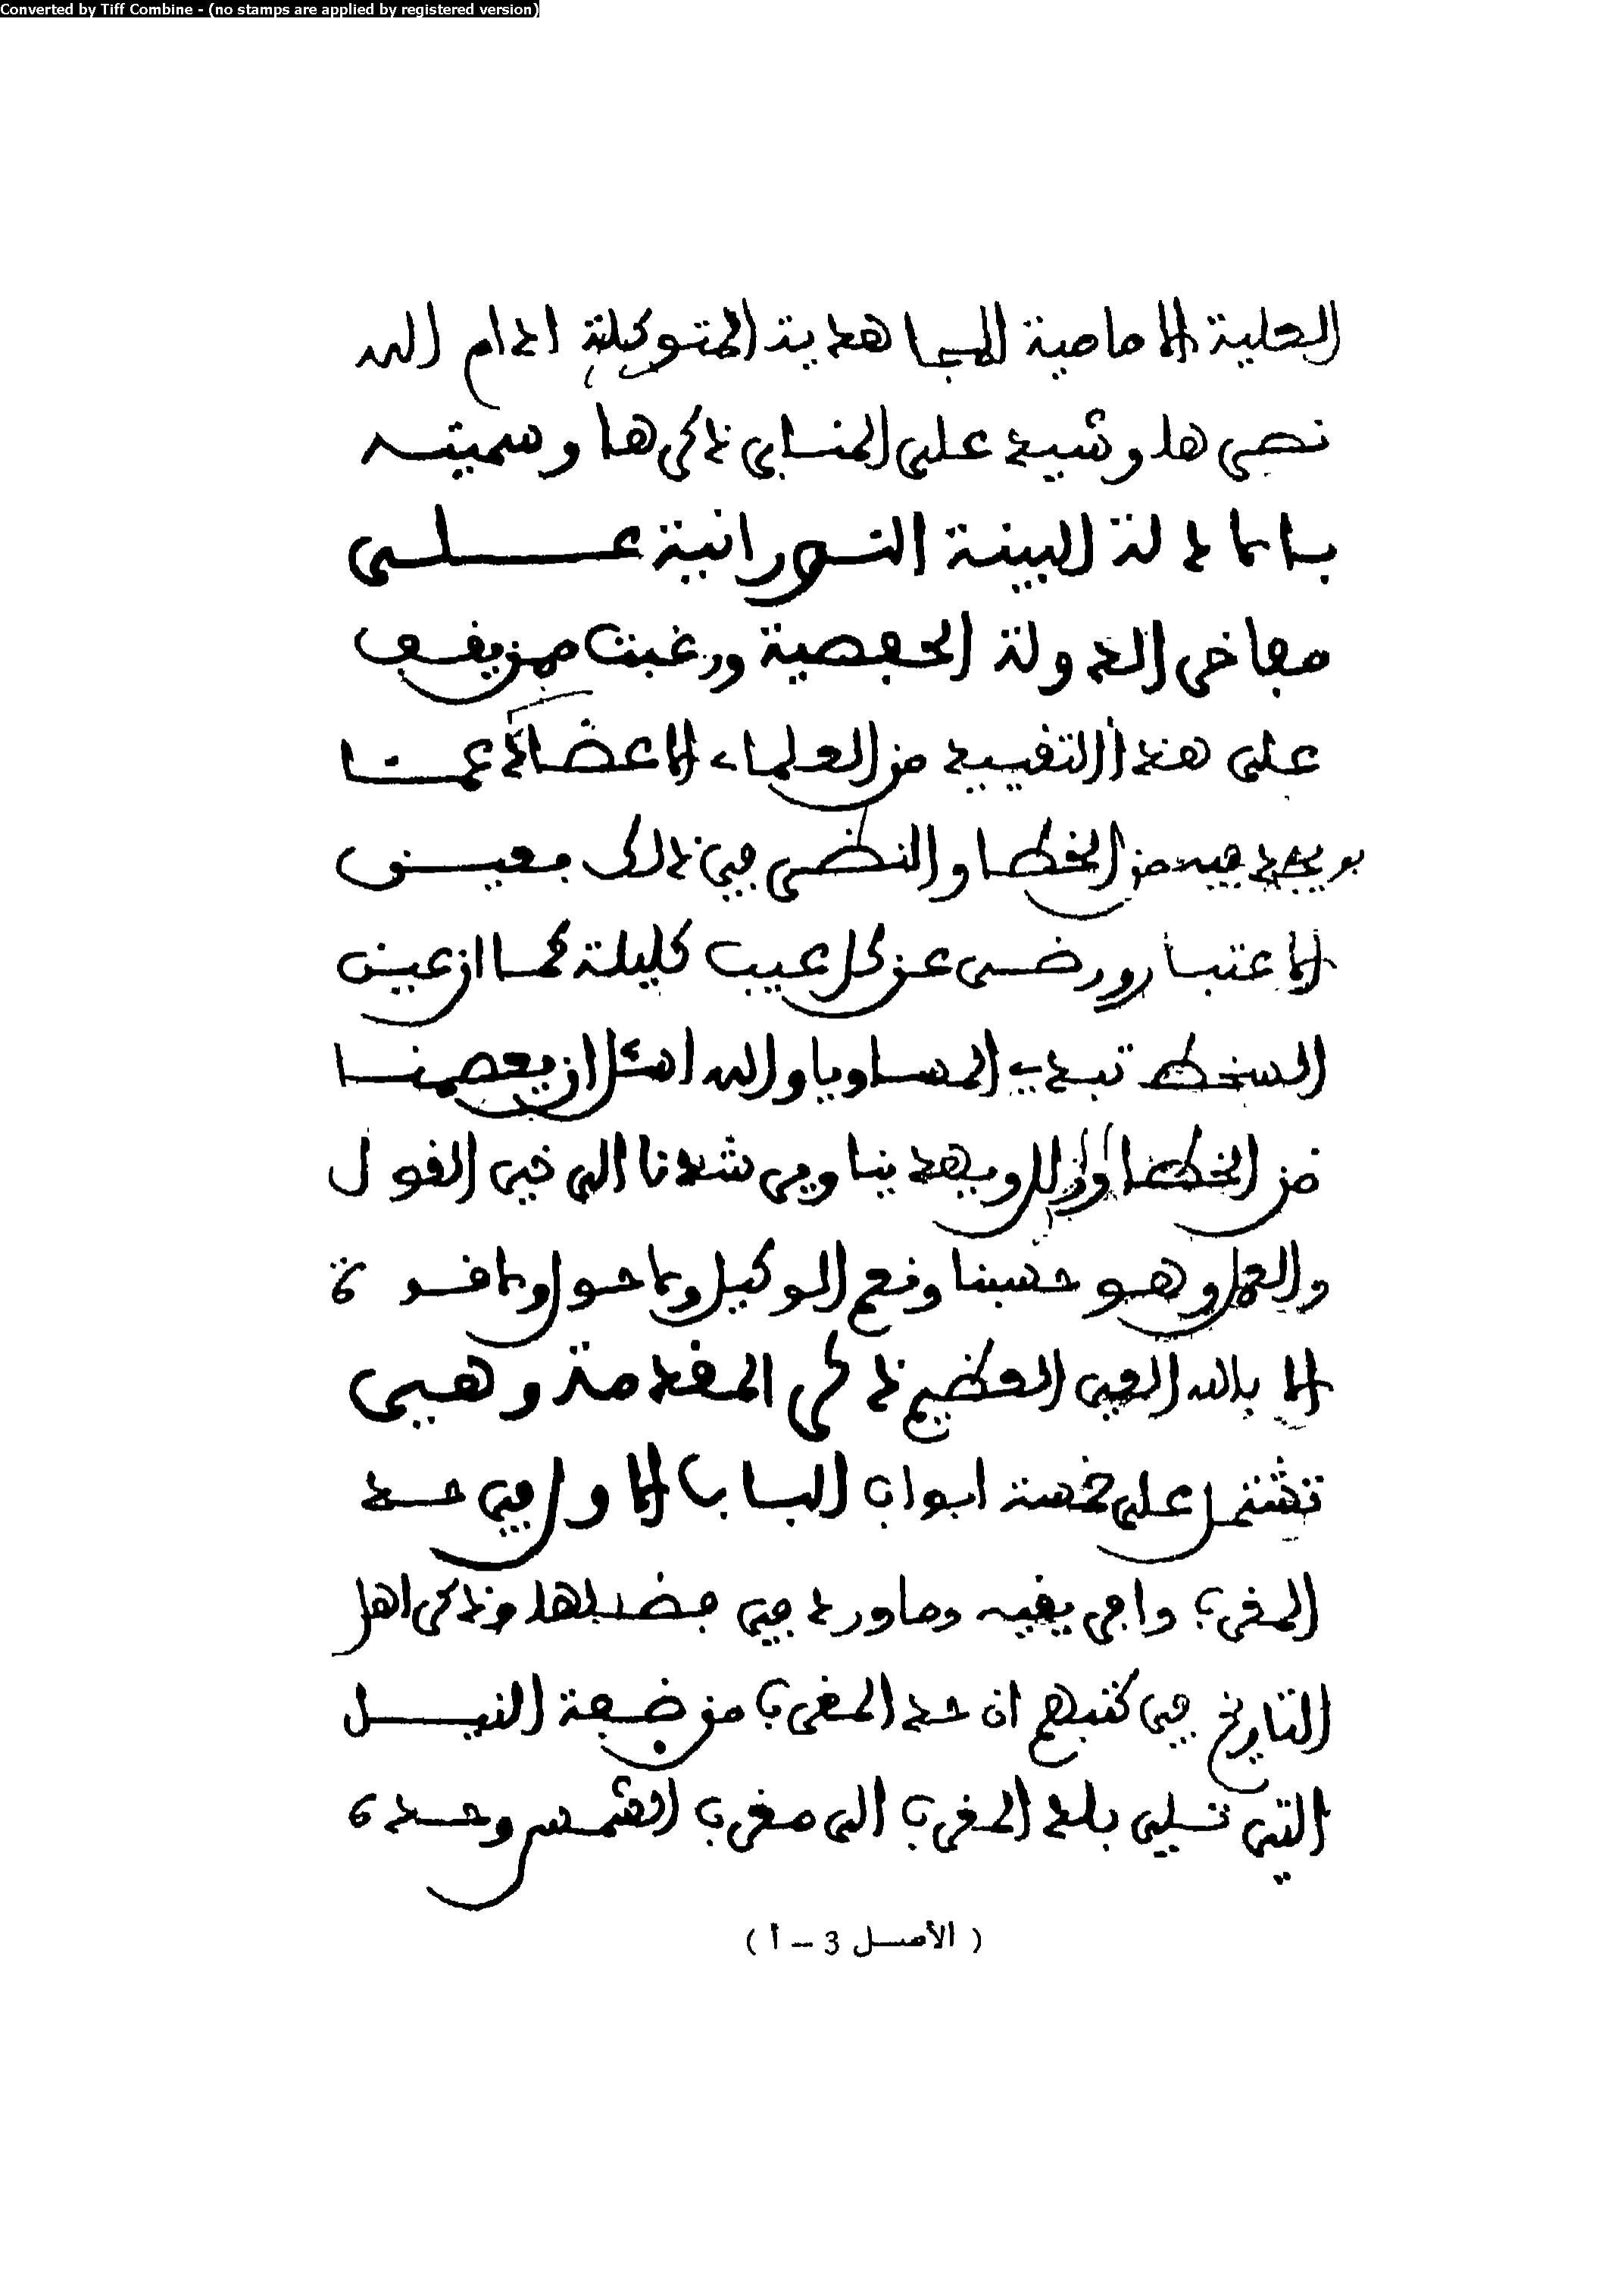 Converted by Tiff Combine - (no stamps are applied by registered version)
العلية الامامية المجاهدية المتوكلية ادام الله
نصرها وشيد على المنابر ذكرها وسميته
بالادلة البينة النورانية على
مفاخر الدولة الحفصية ورغبت ممن يقف
على هذا التقييد من العلماء الاعضاء عما
يوجد فيه من الخطا والنظر في ذلك بعين
الاعتبار ورضى عن كل عيب كليلة كما ان عين
السخط تبدي المساويا والله اسئل ان يعصمنا
من الخطا والزلل ويهدينا ويرشدنا الى خير القول
والعمل وهو حسبنا ونعم الوكيل ولا حول ولا قوة
الا بالله العلي العظيم ذكر المقدمة وهي
تشتمل على خمسة ابواب الباب الاول في حد
المغرب وافريقية وما ورد في فضلها وذكر اهل
التاريخ في كتبهم ان حد المغرب من ضفة النيل
التي تلي بلد المغرب الى مغرب الشمس وحده
( الأصل 3 – أ )